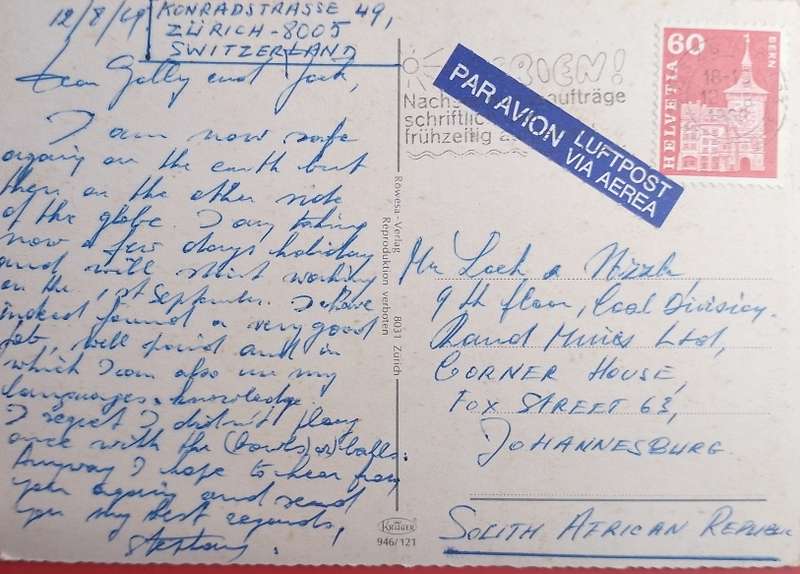 12/8/69
KONRADSTRASSE 49,
ZÜRICH-8005
SWITZERLAND
Dear Golly and Jack,
I am now safe
again on the earth but
then on the other side
of the globe. I am taking
now a few days holiday
and will start working
on the 1st September. I have
indeed found a very good
job, well paid and in
which I can also use my
languages knowledge.
I regret I didn't play
once with the (bowls) or balls.
Anyway I hope to hear from
you again and send
you my best regards,
Röwesa-Verlag 8031 Zürich
Reproduktion verboten
KRÜGER
946/121
FERIEN!
Nachs aufträge
schriftlich
frühzeitig
PAR AVION
LUFTPOST
VIA AEREA
60
HELVETIA
BERN
Mr Loch &
9th floor, Coal Division.
Rand Mines Ltd,
CORNER HOUSE,
FOX STREET 63,
JOHANNESBURG
SOUTH AFRICAN REPUBLIC